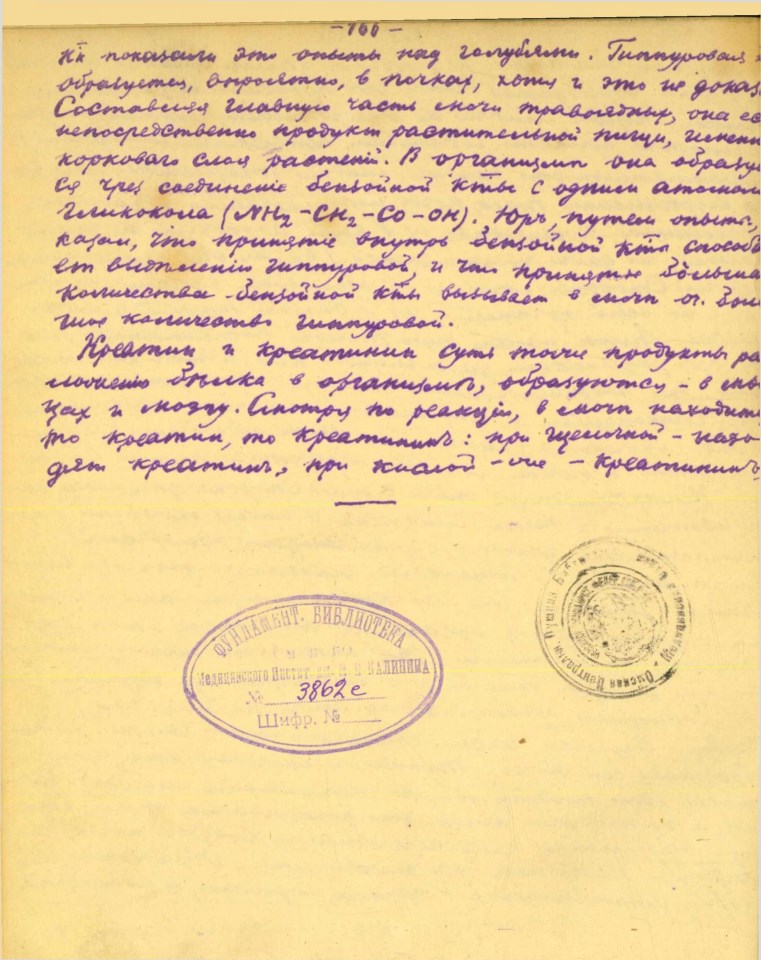 -166-
какъ показали это опыты над голубями. Гиппуровая
образуется, вѣроятно, в почках, хотя и это не доказ
Составляя главную часть мочи травоядных, она ес
непосредственно продукт растительной пищи, именн
корковаго слоя растенiй. В организмѣ она образуе
ся чрез соединенiе бензойной к-ты с одним атомом
гликокола (NH2-CH2-CO-OH). Юръ, путем опыта,
казал, что принятiе внутрь бензойной к-ты способ
ет выдѣленiю гиппуровой, и что принятiе больша
количества бензойной к-ты вызывает в мочѣ боль
шое количество гиппуровой.
Креатин и креатинин суть тоже продукты ра
ложенiя бѣлка в организмѣ, образуются - в мы
цах и мозгу. Смотря по реакцiи, в мочѣ находитс
то креатин, то креатининъ: при щелочной - нахо
дят креатинъ, при кислой - же - креатининъ.
ФУНДАМЕНТ. БИБЛИОТЕКА
Медицинского Инстит. им. М. И. КАЛИНИНА
№ 3862 е
Шифр. №
Омская Централь